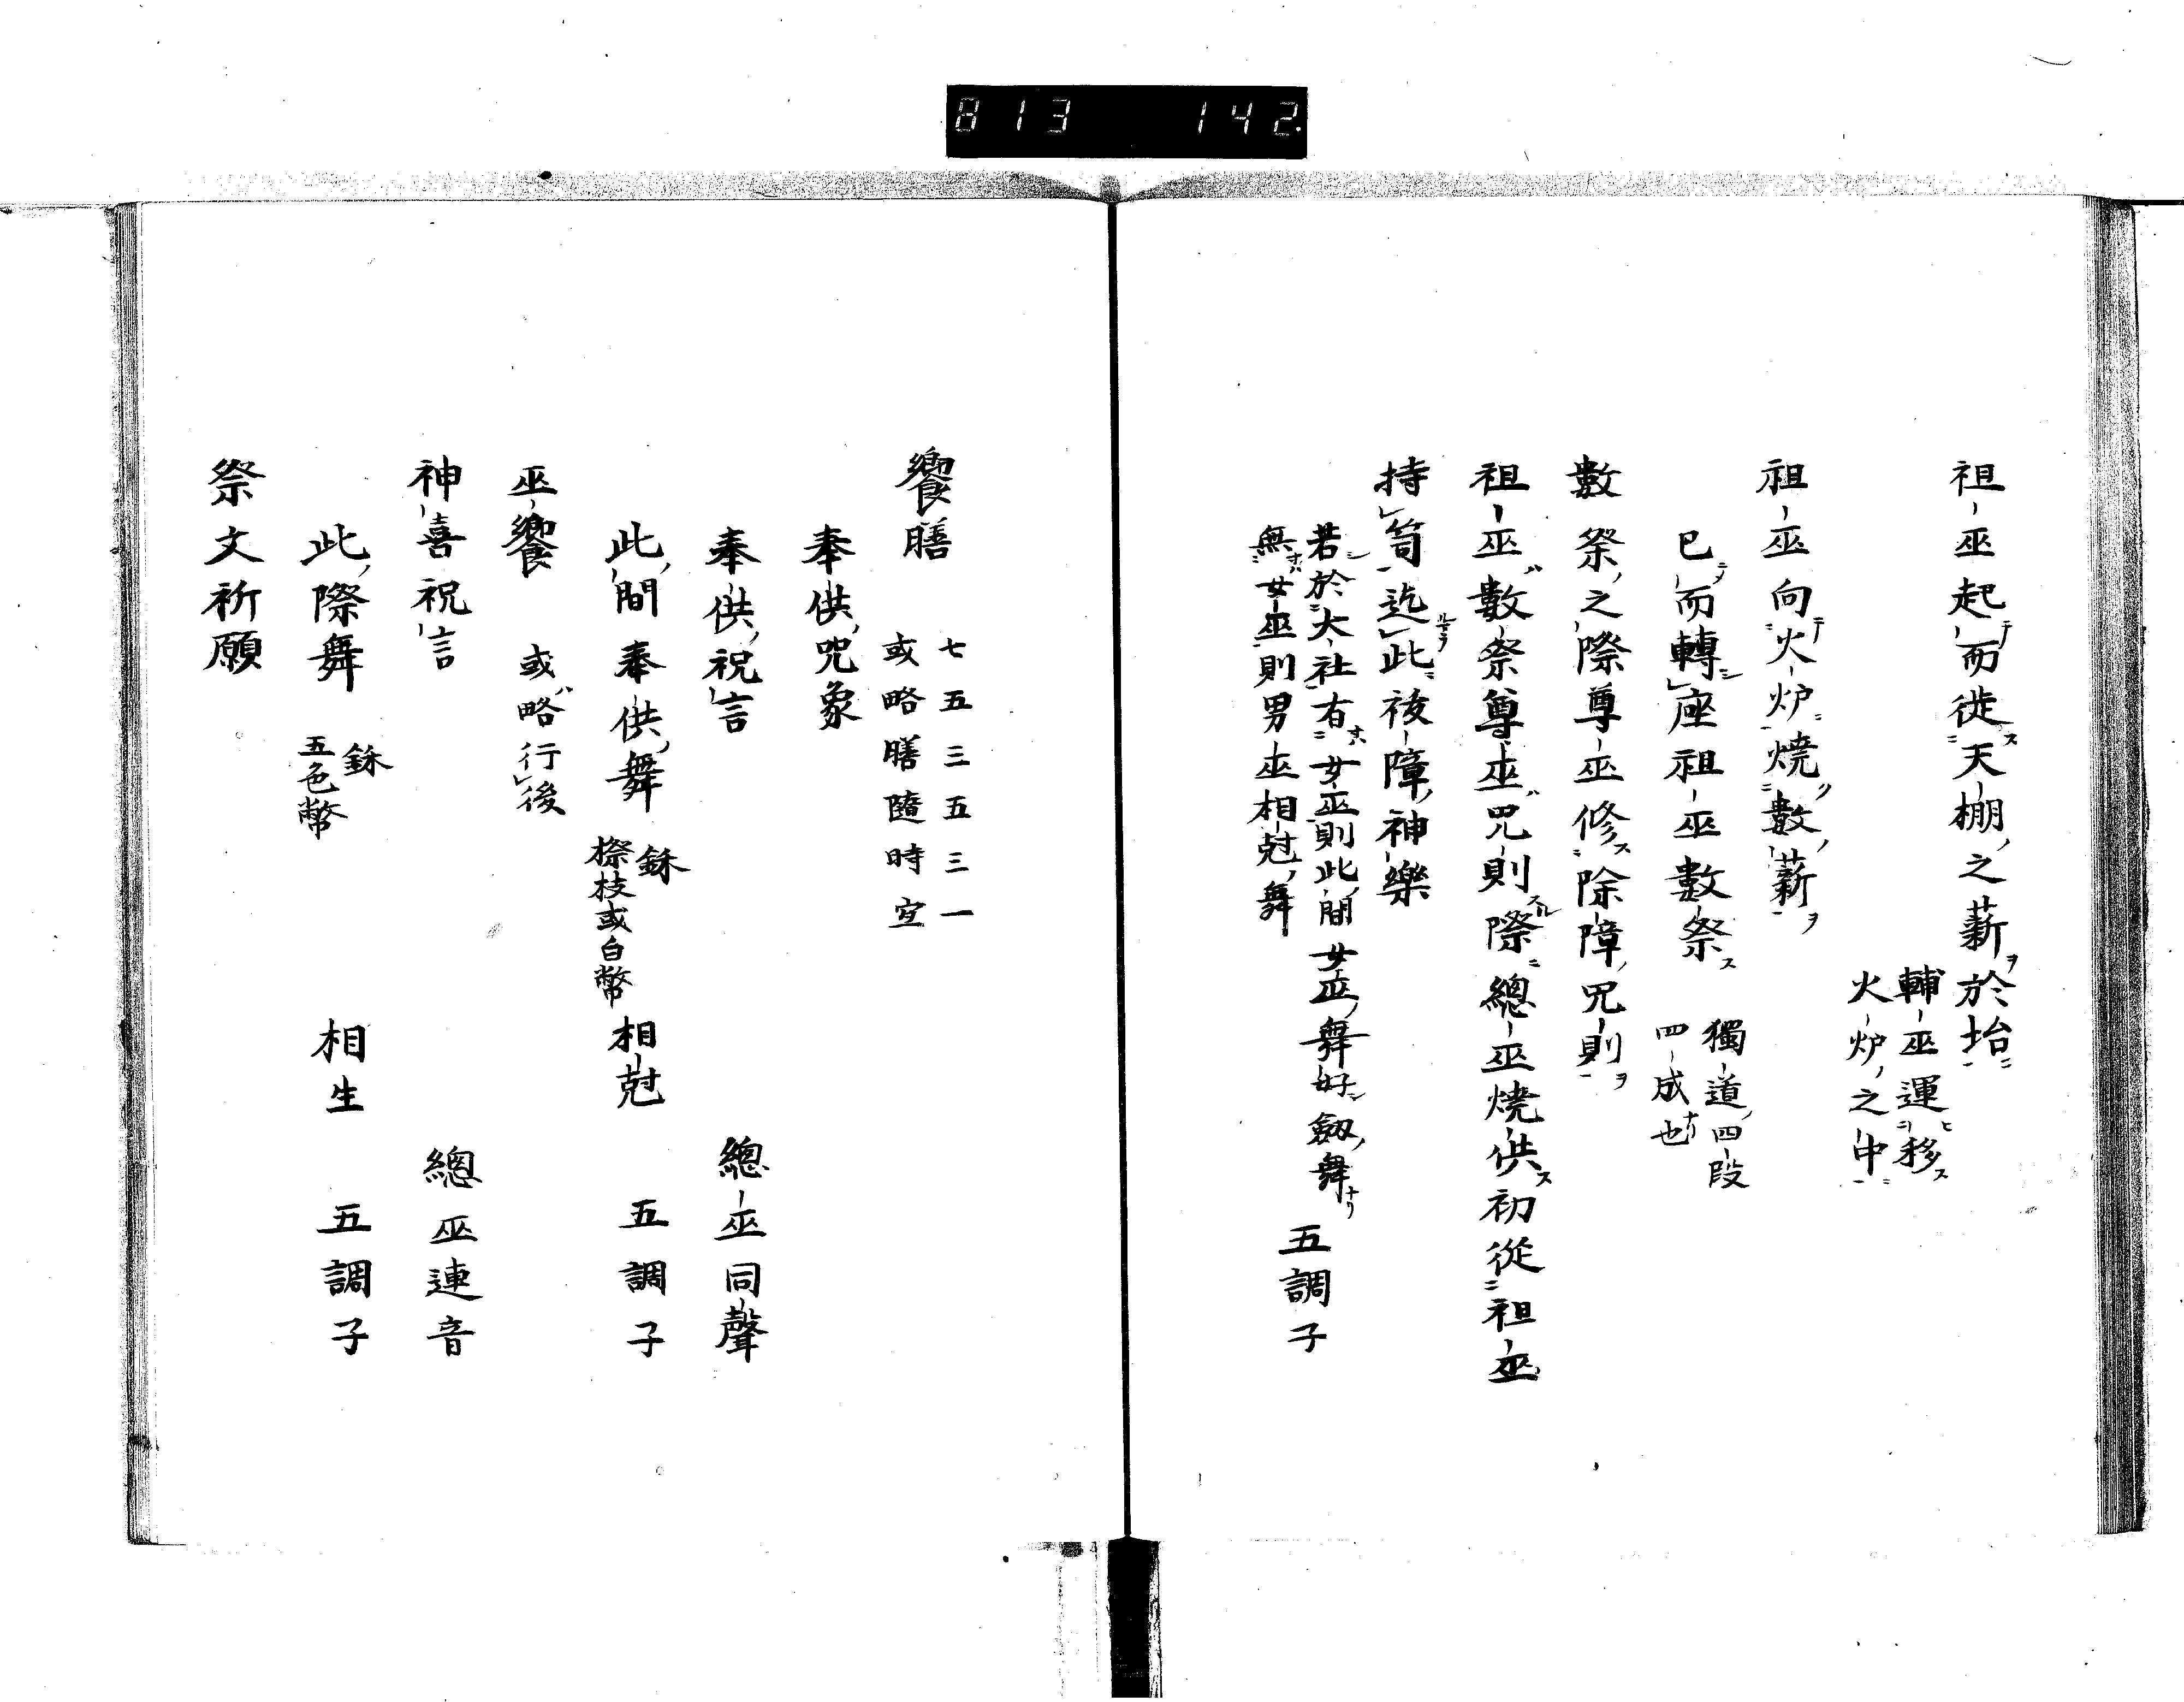 813 142.
祖巫起而徙天棚之薪於坮
輔巫運移
火炉之中
祖巫向火炉燒數薪
已而轉座祖巫數祭
獨道四段
四成也
數祭之際尊巫修除障咒則
祖巫數祭尊巫咒則際總巫燒供初從祖巫
持笥迄此後障神樂
若於大社有女巫則此間女巫舞好劔舞
無女巫則男巫相尅舞
五調子
饗膳
七五三五三一
或略膳隨時宜
奉供咒象
奉供祝言 總巫同聲
此間奉供舞
銤
榇枝或白幣
相尅 五調子
巫饗 或略行後
神喜祝言 總巫連音
此際舞
銤
五色幣
相生 五調子
祭文祈願